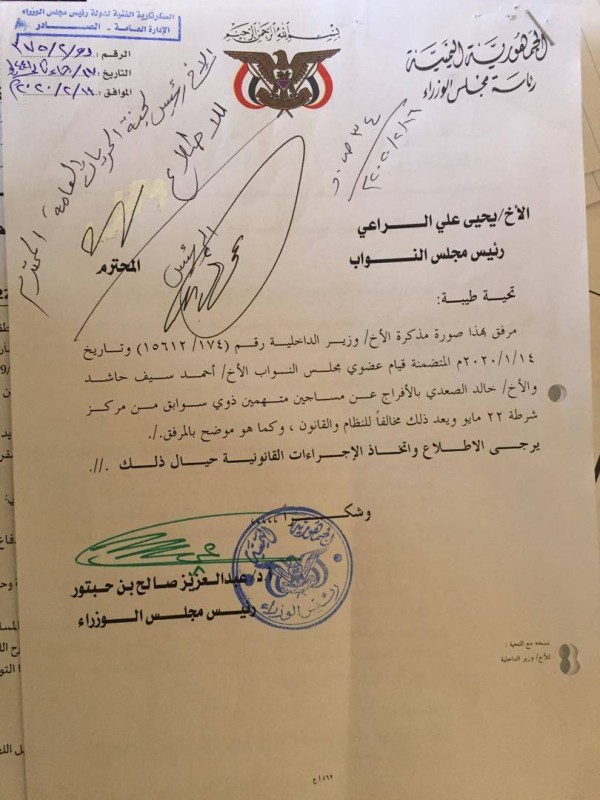 السكرتارية الفنية لدولة رئيس مجلس الوزراء
الإدارة العامة - الصـــادر
بسم الله الرحمن الرحيم
الجمهورية اليمنية
رئاسة مجلس الوزراء
الرقم:
التاريخ
الموافق: ٢٠٢٠/٢/١٦م
الاخ رئيس لجنة الحريات العامة المحترم
للاطلاع
٢٠٢٠/٢/١٦م
الرئيس
الأخ/يحيى علي الــراعي
رئيس مجلس النــواب
المحترم
تحية طيبة:
مرفق بهذا صورة مذكرة الأخ/ وزير الداخلية رقم (١٥٦١٢/١٧٤) وتاريخ
٢٠٢٠/١/١٤م المتضمنة قيام عضوي مجلس النواب الأخ/ أحمد سيف حاشد
والأخ/ خالد الصعدي بالأفراج عن مساجين متهمين ذوي سوابق من مركز
شرطة ٢٢ مايو ويعد ذلك مخالفاً للنظام والقانون ، وكما هو موضح بالمرفق./.
يرجـى الاطلاع واتخاذ الإجراءات القانونية حيال ذلك .//.
وشكـــراً ،،،،،
د/ عبدالعزيز صالح بن حبتور
رئيس مجلس الـوزراء
الجمهورية اليمنية
رئيس الوزراء
نسخه مع التحية :
للأخ/ وزير الداخلية